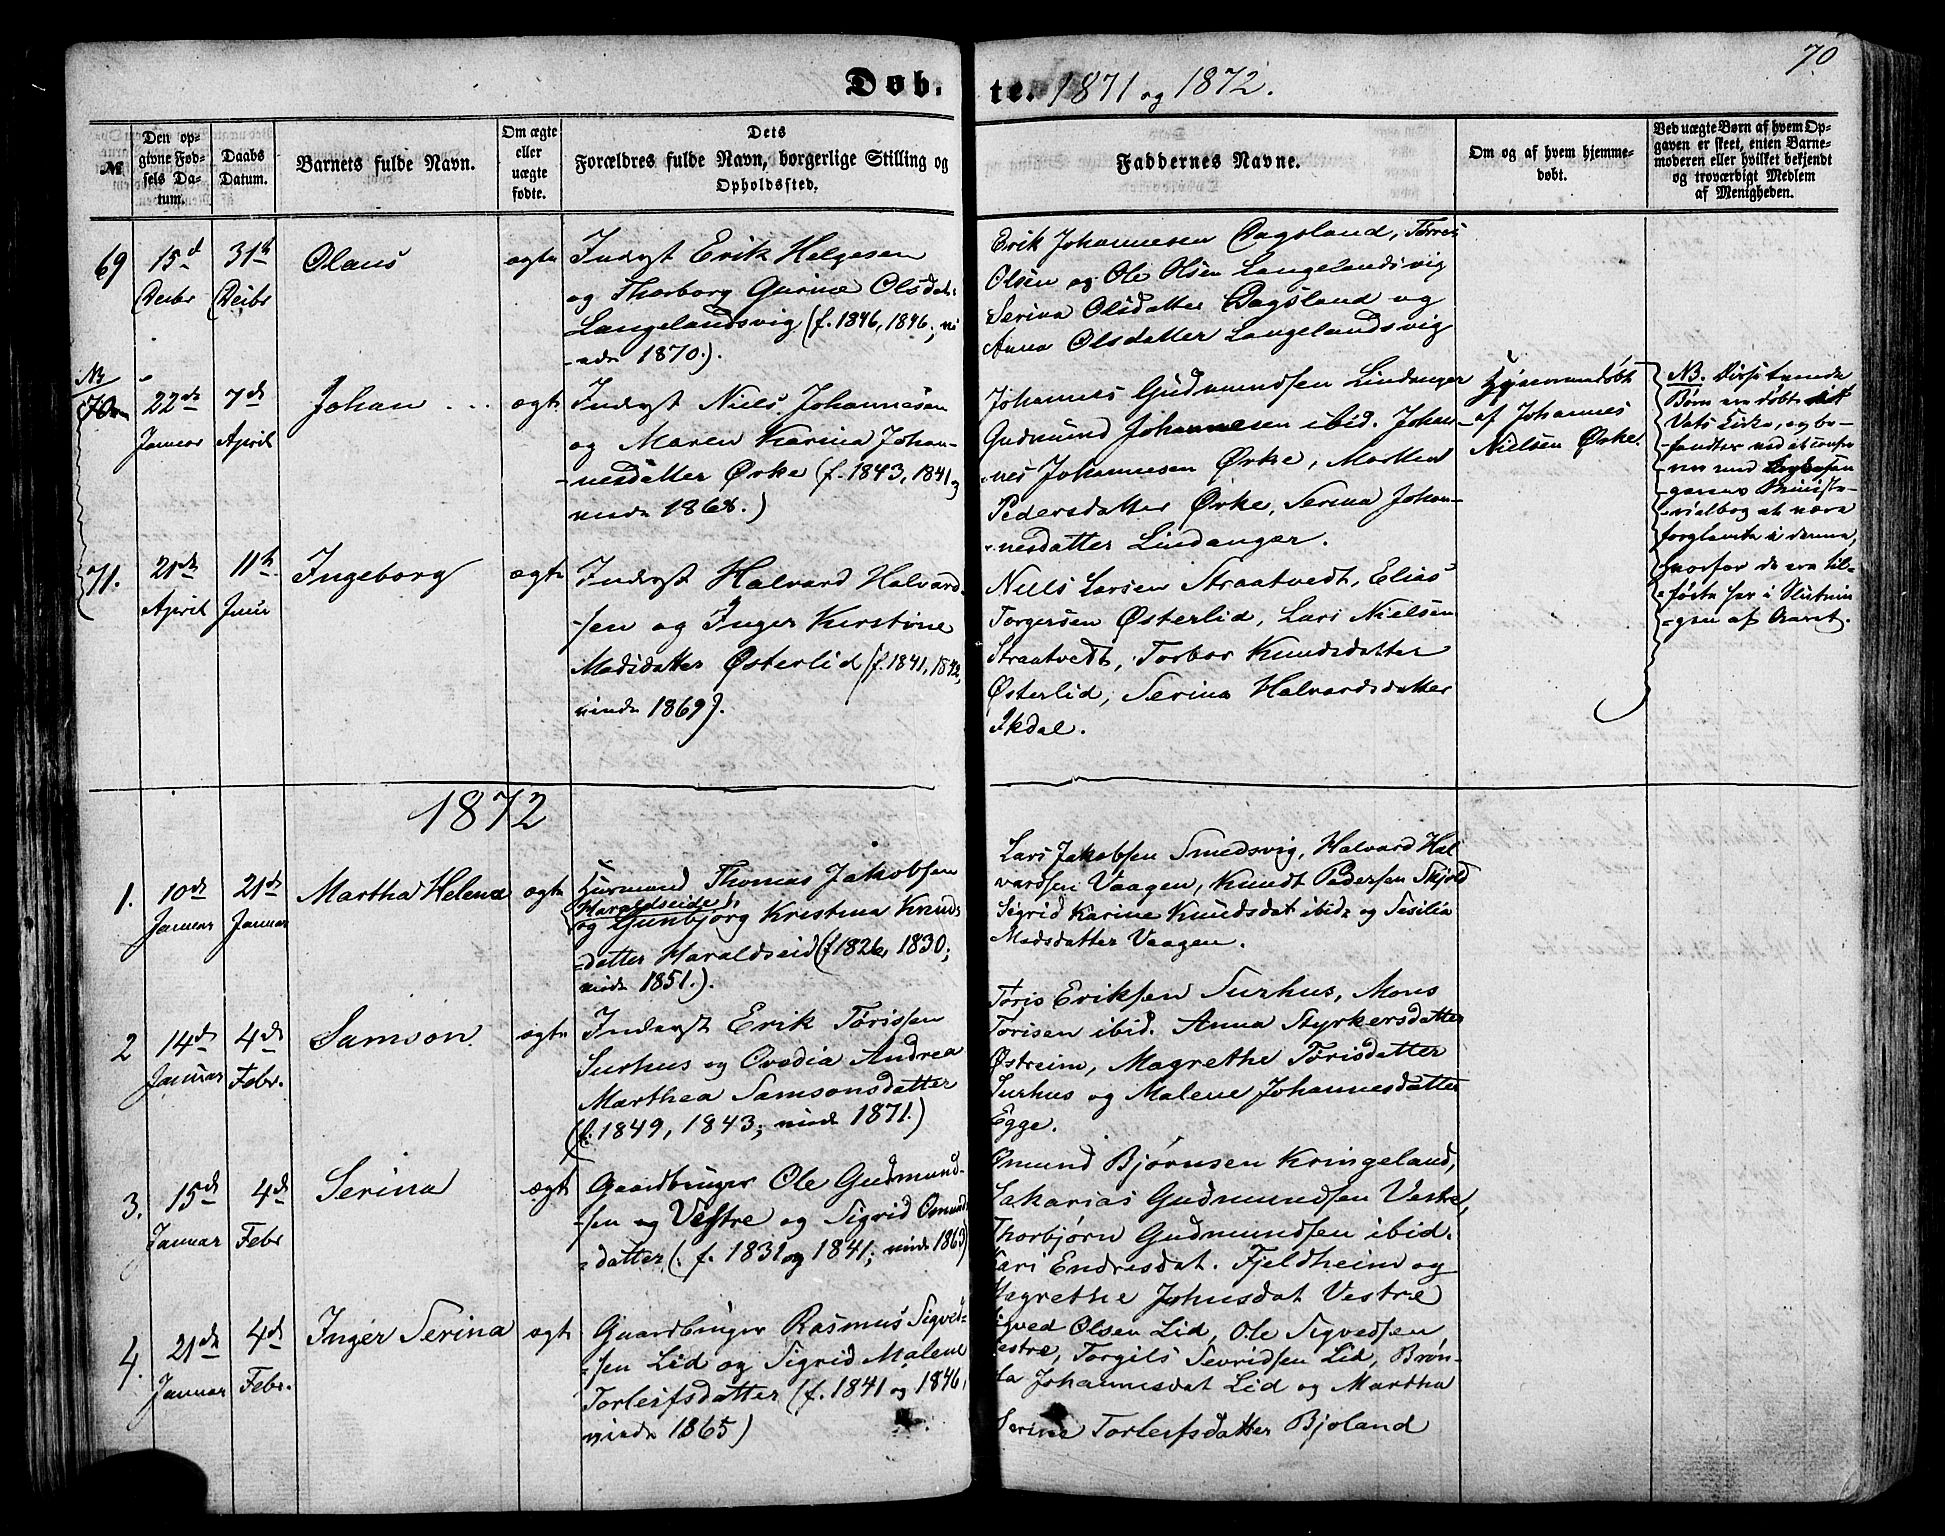 70
Døb-
te. 1871 og 1872.
№
Den op-
givne Fød-
sels Da-
tum.
Daabs
Datum.
Barnets fulde Navn.
Om ægte
eller
uægte
fødte.
Dets
Forældres fulde Navn, borgerlige Stilling og
Opholdssted.
Faddernes Navne.
Om og af hvem hjemme-
døbt.
Ved uægte Børn af hvem Op-
gaven er skeet, enten Barne-
moderen eller hvilket bekjendt
og troværdigt Medlem
af Menigheden.
69
15d
Decbr
31te
Decbr
Olaus
ægte
Inderst Erik Helgesen
og Thorborg Gurine Olsdat:
Langelandsvig (f. 1846, 1846; vi
-ede 1870.).
Erik Johannesen Dagsland, Tørres
Olsen og Ole Olsen Langelandsvig
Serina Olsdatter Dagsland og
Anna Olsdatter Langelandsvig
NB
70
22de
Januar
7de
April
Johan
ægte
Inderst Niels Johannesen
og Maren Karina Johan-
-nesdatter Ørke (f. 1843, 1841,
viede 1868.)
Johannes Gudmundsen Lindanger
Gudmund Johannesen ibid. Johan
-nes Johannesen Ørke, Marthe
Pedersdatter Ørke, Serina Johan-
-nesdatter Lindanger.
Hjemmedøbt
af Johannes
Nielsen Ørke.
NB. Disse tvende
Børn ere døbte
Vats Kirke, og be-
fandtes ved at confere-
-res med
-garens Ministe-
-rialbog at være
forglemte i denne,
hvorfor de ere til-
-førte her i Slutnin
-gen af Aaret.
71.
21de
April
11te
Juni
Ingeborg
ægte
Inderst Halvard Halvard-
-sen og Inger Kirstine
Madsdatter Østerlid (f. 1841, 1842,
viede 1869).
Niels Larsen Straatvedt, Elias
Torgersen Østerlid, Lars Nielsen
Straatvedt, Torbor Knudsdatter
Østerlid, Serina Halvardsdatter
Ikdal.
1872
1.
10de
Januar
21de
Januar
Martha Helena
ægte
Huusmand Thomas Jakobsen
Haraldseide,
og Gunbjørg Kristina Knuds
-datter Haraldseid (f. 1826, 1830;
viede 1851.).
Lars Jakobsen Smedsvig, Halvard Hal
vardsen Vaagen, Knudt Pedersen Skjold
Sigrid Karine Knudsdat ibid: og Sesilia
Madsdatter Vaagen.
2
14de
Januar
4de
Febr.
Samson.
ægte
Inderst Erik Tørissen
Surhus og Ovedia Andrea
Marthea Samsonsdatter
(f. 1849, 1843; viede 1871.)
Tøris Eriksen Surhus, Mons
Tørisen ibid. Anna Styrkersdatter
Østreim, Magrethe Tørisdatter
Surhus og Malene Johannesdatter
Egge.
3.
15de
Januar
4de
Febr
Serina
ægte
Gaardbruger Ole Gudmund-
-sen og Vestre og Sigrid Omund
-datter (: f. 1831 og 1841; viede 1863)
Omund Bjørnsen Kringeland,
Sakarias Gudmundsen Vestre,
Thorbjørn Gudmundsen ibid.
Kari Endresdat. Fjeldheim og
Magrethe Johnsdat Vestre
4.
21de
Januar
4de
Febr.
Inger Serina
ægte
Gaardbruger Rasmus Sigved-
-sen Lid og Sigrid Malene
Torleifsdatter (f. 1841 og 1846,
viede 1865)
Sigved Olsen Lid, Ole Sigvedsen,
Vestre, Torgils Sevridsen Lid, Brøn-
-la Johannesdat Lid og Martha
Serine Torleifsdatter Bjoland